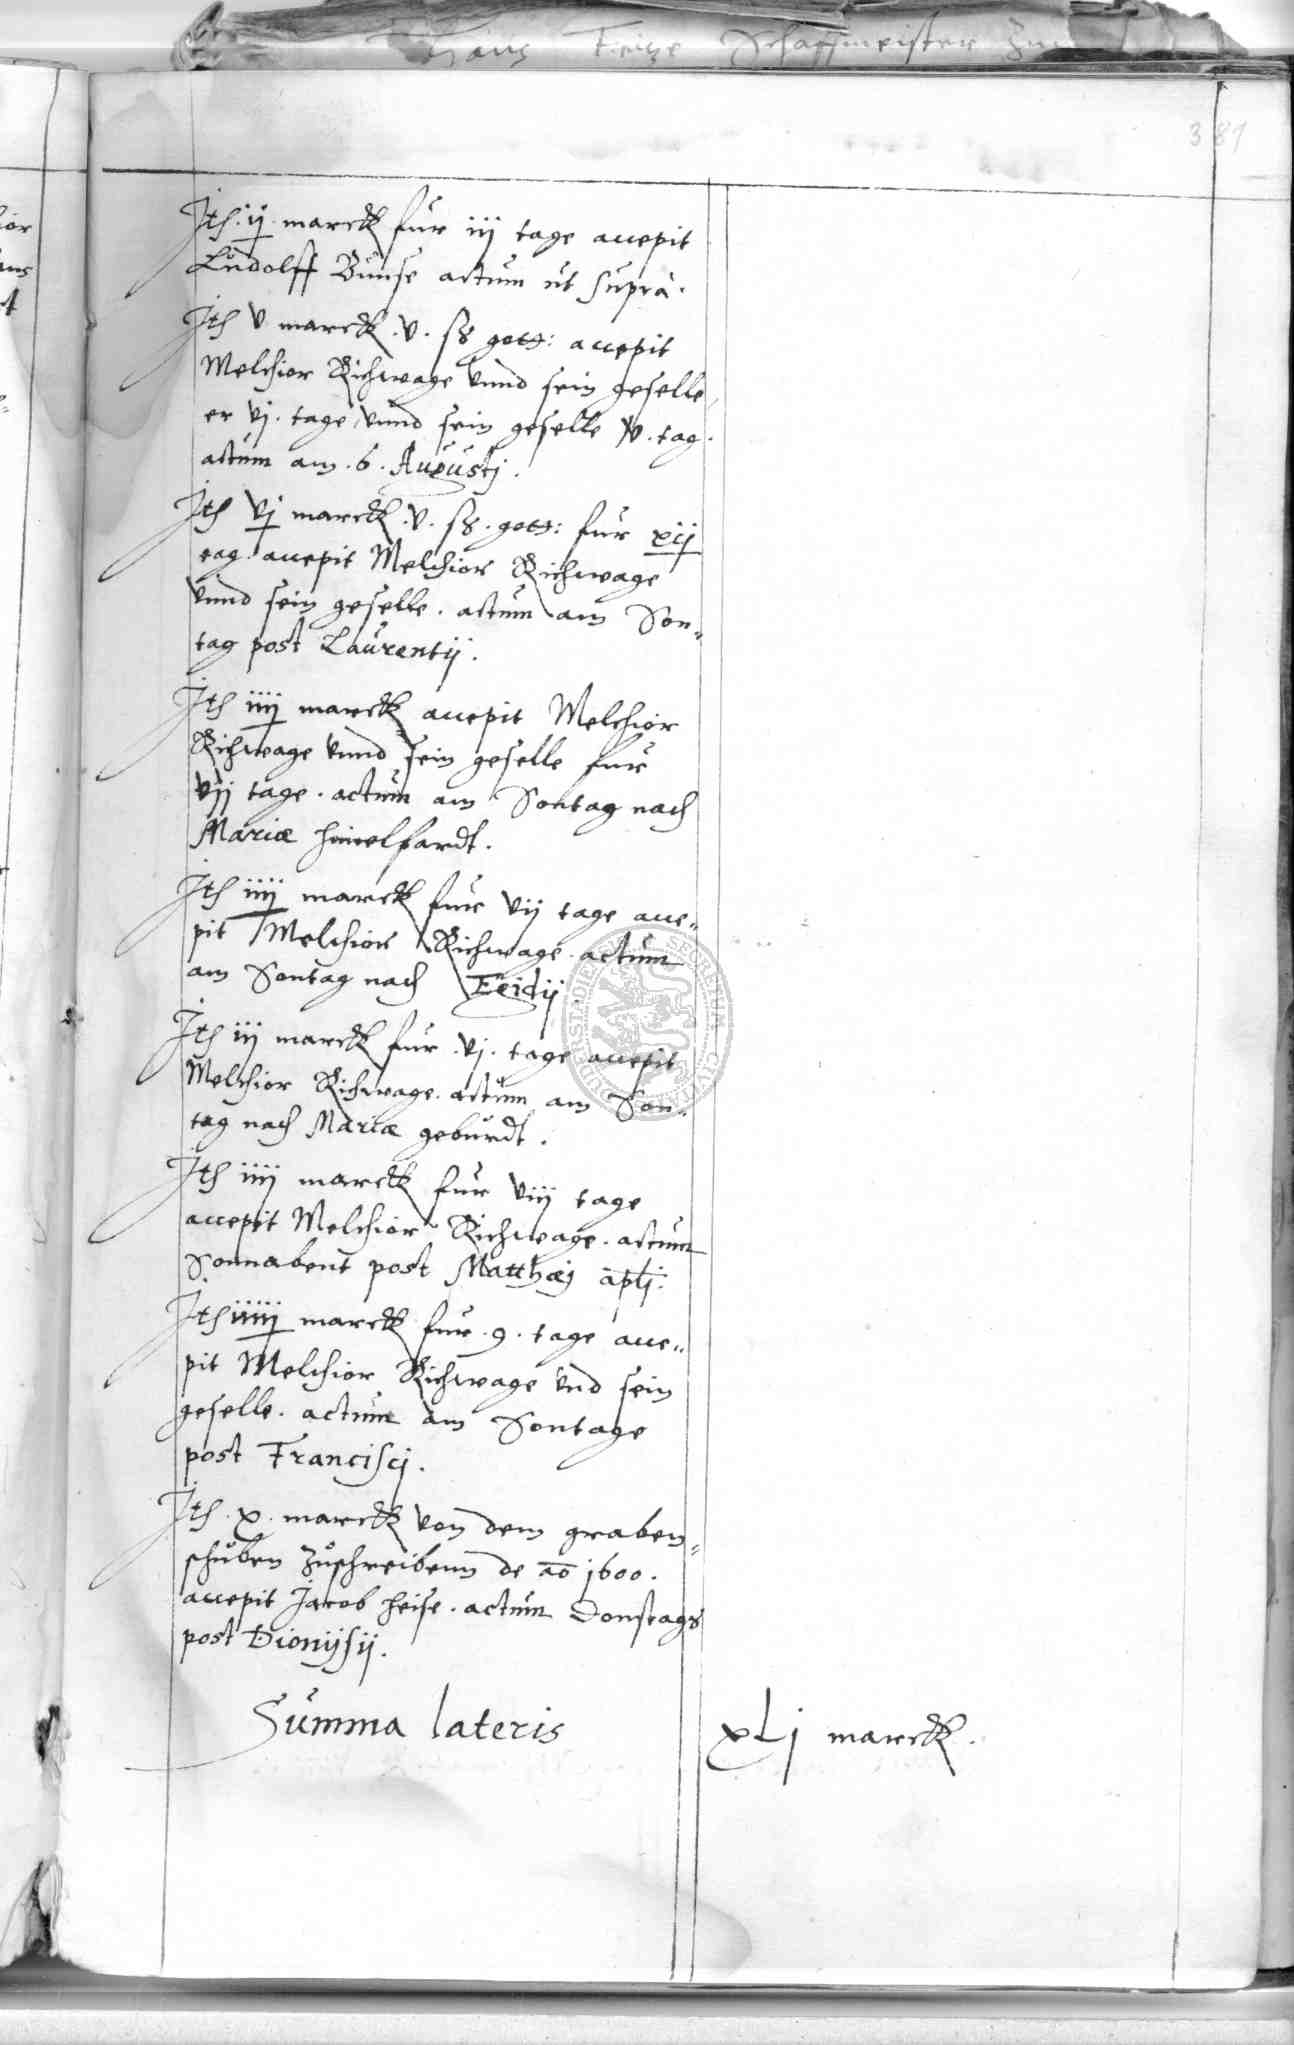 381
Jtē ij marck fur iij tage accepit
Ludolff Bunse actum ut supra.
Jtē v marck .v. ß gott: accepit
Melchior Richwage vnnd sein geselle,
er vj. tage, vnnd sein geselle v. tag.
actum am .6. Augustj.
Jtē vj marck .v. ß. gott: fur xij
tag accepit Melchior Richwage
vnnd sein geselle. actum am Son„
tag post Laurentij.
Jtē iiij marck accepit Melchior
Richwage vnnd sein geselle fur
vij tage. actum am Sontag nach
Mariæ himelfardt.
Jtē iiij marck fur vij tage acce„
pit Melchior Richwage. actum
am Sontag nach Egidij
Jtē iij marck fur .vj. tage accepit
Melchior Richwage. actum am Son„
tag nach Mariæ geburdt.
Jtē iiij marck fur viij tage
accepit Melchior Richwage. actum
Sonnabent post Matthæj apłi.
Jtē iiiij marck fur .9. tage acce„
pit Melchior Richwage vnd sein
geselle. actum am Sontage
post Francisci.
Jtē .x. marck von dem graben„
schuben zuschreibenn de aō 1600.
accepit Jacob Heise. actum Donstags
post Dionijsij.
Summa lateris xLj marck.
SECRETUM CIVITATIS DUDERSTADIENSIS